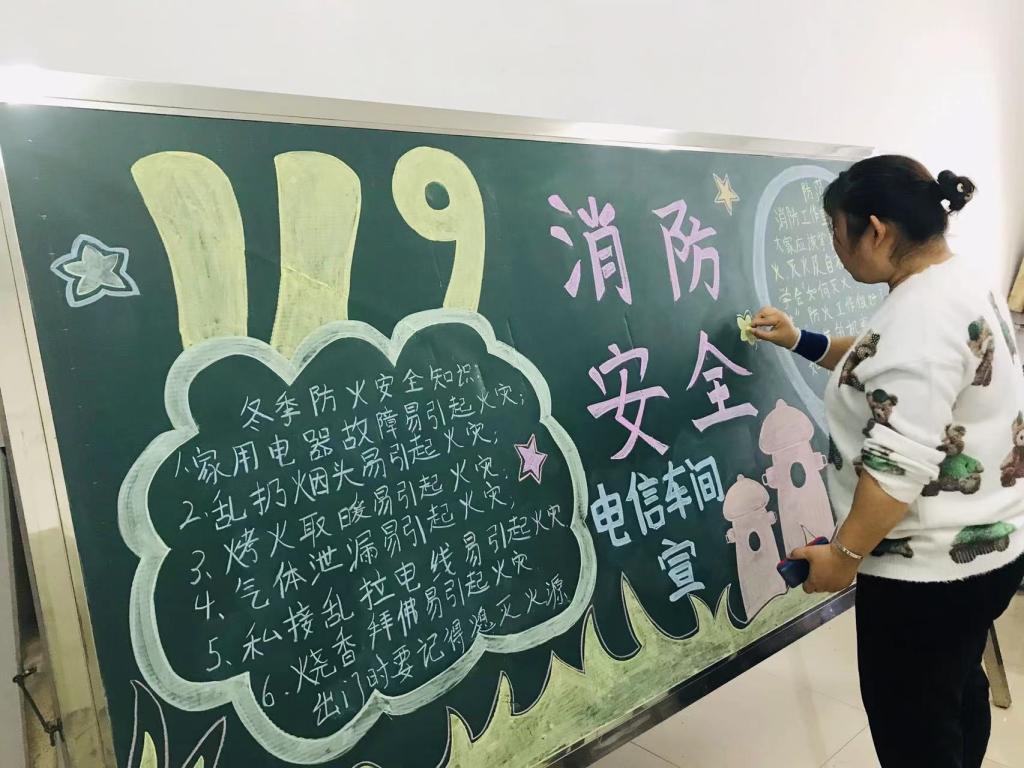 119
消防
安全
电信车间
宣
冬季防火安全知识
1.家用电器故障易引起火灾;
2.乱扔烟头易引起火灾;
3、烤火取暖易引起火灾
4、气体泄漏易引起火灾;
5、私接乱拉电线易引起火灾
6.烧香拜佛易引起火灾
出门时要记得熄灭火源
防
消防工作
大家应该
火灭火及自
学会如何灭火
防火工作